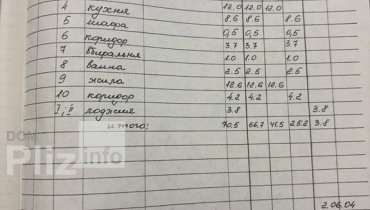 4 кухня 12.0 12.0 12.0
5 шафа 8.6 8.6 8.6
6 коридор 0,5 0,5 0,5
7 вбиральня 3.7 3.7 3.7
8 ванна 1.0 1.0 1.0
9 жила 2.5 2.5 2.5
10 коридор 12.6 12.6 12.6
I, II лоджия 4.2 4.2 4.2
3.8 3.8
итого: 70.5 66.7 41.5 25.2 3.8
2.06.04
DOM
Pliz info